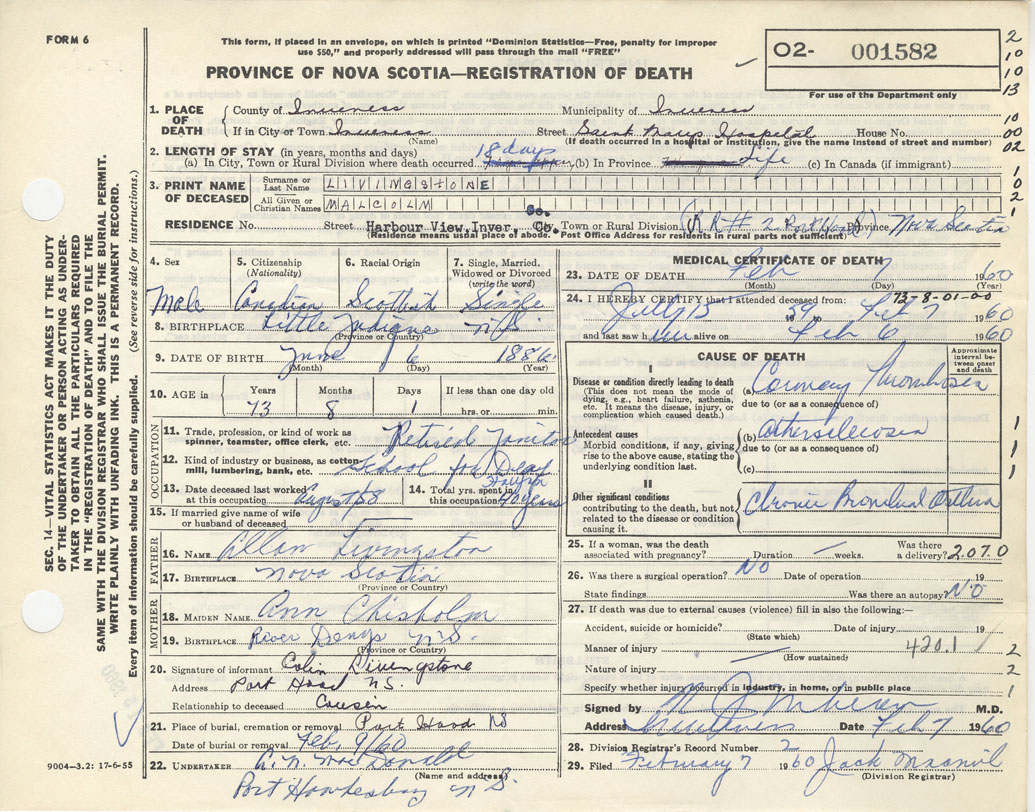 FORM 6
This form, if placed in an envelope, on which is printed "Dominion Statistics—Free, penalty for improper
use $50," and properly addressed will pass through the mail "FREE"
PROVINCE OF NOVA SCOTIA—REGISTRATION OF DEATH
O2- 001582
For use of the Department only
2
10
10
13
10
00
02
1
0
2
1
1. PLACE OF DEATH
County of Inverness Municipality of Inverness
If in City or Town Inverness Street Saint Marys Hospital House No.
(Name) (If death occurred in a hospital or institution, give the name instead of street and number)
2. LENGTH OF STAY (in years, months and days)
(a) In City, Town or Rural Division where death occurred 18 days (b) In Province Life (c) In Canada (if immigrant)
3. PRINT NAME OF DECEASED
Surname or Last Name LIVINGSTONE
All Given or Christian Names MALCOLM
RESIDENCE No. Street Harbour View, Inver. Co. Town or Rural Division (R R # 2 Port Hood) Province Nova Scotia
(Residence means usual place of abode. Post Office Address for residents in rural parts not sufficient)
4. Sex Male
5. Citizenship (Nationality) Canadian
6. Racial Origin Scottish
7. Single, Married, Widowed or Divorced (write the word) Single
8. BIRTHPLACE Little N.S.
(Province or Country)
9. DATE OF BIRTH June 6 1886
(Month) (Day) (Year)
10. AGE in Years 73 Months 8 Days 1 If less than one day old hrs. or min.
OCCUPATION
11. Trade, profession, or kind of work as spinner, teamster, office clerk, etc. Retired Janitor
12. Kind of industry or business, as cotton-mill, lumbering, bank, etc. School for Deaf Halifax
13. Date deceased last worked at this occupation August 58
14. Total yrs. spent in this occupation 40 years
15. If married give name of wife or husband of deceased
FATHER
16. NAME Allan Livingston
17. BIRTHPLACE Nova Scotia
(Province or Country)
MOTHER
18. MAIDEN NAME Ann Chisholm
19. BIRTHPLACE River Denys N.S.
(Province or Country)
20. Signature of informant Colin Livingstone
Address Port Hood N.S.
Relationship to deceased Cousin
21. Place of burial, cremation or removal Port Hood NS
Date of burial or removal Feb, 9/60
22. UNDERTAKER A. N. MacDonald
(Name and address)
Port Hawkesbury N.S.
MEDICAL CERTIFICATE OF DEATH
23. DATE OF DEATH Feb 7 1960
(Month) (Day) (Year)
73-8-01-00
24. I HEREBY CERTIFY that I attended deceased from:
July 15 1959 to Feb 7 1960
and last saw him alive on Feb 6 1960
CAUSE OF DEATH
Approximate interval between onset and death
I
Disease or condition directly leading to death (a) Coronary Thrombosis
(This does not mean the mode of dying, e.g., heart failure, asthenia, etc. It means the disease, injury, or complication which caused death.)
due to (or as a consequence of)
Antecedent causes (b) Atherosclerosis
Morbid conditions, if any, giving rise to the above cause, stating the underlying condition last.
due to (or as a consequence of)
(c)
1
1
1
1
II
Other significant conditions contributing to the death, but not related to the disease or condition causing it. Chronic Bronchial Asthma
25. If a woman, was the death associated with pregnancy? Duration weeks. Was there a delivery? 2070
26. Was there a surgical operation? No Date of operation 19
State findings Was there an autopsy No
27. If death was due to external causes (violence) fill in also the following:
Accident, suicide or homicide? Date of injury 19
(State which)
Manner of injury 420.1 2
(How sustained)
Nature of injury 2
Specify whether injury occurred in industry, in home, or in public place 1
Signed by M.D.
Address Inverness Date Feb 7 1960
28. Division Registrar's Record Number 2
29. Filed February 7 1960 Jack
(Division Registrar)
SEC. 14—VITAL STATISTICS ACT MAKES IT THE DUTY
OF THE UNDERTAKER OR PERSON ACTING AS UNDER-
TAKER TO OBTAIN ALL THE PARTICULARS REQUIRED
IN THE "REGISTRATION OF DEATH" AND TO FILE THE
SAME WITH THE DIVISION REGISTRAR WHO SHALL ISSUE THE BURIAL PERMIT.
WRITE PLAINLY WITH UNFADING INK. THIS IS A PERMANENT RECORD.
Every item of information should be carefully supplied. (See reverse side for instructions.)
9004-3.2: 17-6-55